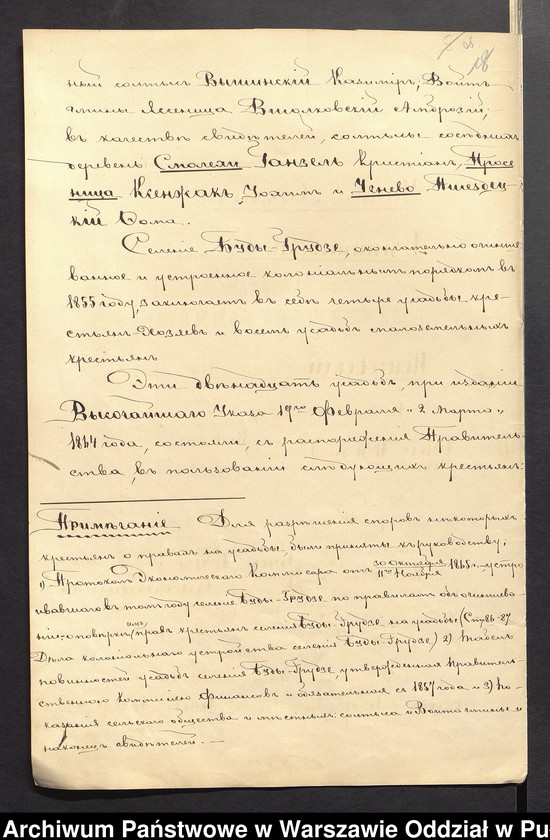 18
ный солтысъ Вышинскій Казиміръ, Войтъ
гмины Ясеница Виолковскій Амброзій,
въ качествѣ свидѣтелей, солтысы сосѣднихъ
деревень Смолехи Ганзель Кристіанъ, Просе
ница Ксенжакъ Іоахимъ и Угнево
кій Ѳома.
Селеніе Буды-Грудзе, окончательно очинше
ванное и устроенное колоніальнымъ порядкомъ въ
1855 году, заключаетъ въ себѣ четыре усадьбы кре-
стьянъ-хозяевъ и восемь усадьбъ малоземельныхъ
крестьянъ
Эти двѣнадцать усадьбъ, при изданіи
Высочайшаго Указа 19го Февраля "2 Марта"
1864 года, состояли, съ распоряженія Правитель-
ства, въ пользованіи слѣдующихъ крестьянъ:
Примѣчаніе Для разрѣшенія споровъ нѣкоторыхъ
крестьянъ о правахъ на усадьбы, были приняты къ руководству:
1) Протоколъ Экономическаго Коммисара отъ 30 Октября / 11го Ноября 1865 г. устро
ивавшаго въ томъ году селеніе Буды-Грудзе по правиламъ объ очиншева-
ніи, о повѣркѣ правъ крестьянъ селенія Буды-Грудзе на усадьбы (Стр 86-87
Дѣла колоніальнаго устройства селенія Буды-Грудзе) 2) Табель
повинностей усадьбъ селенія Буды-Грудзе, утвержденная Правитель-
ственною Коммисіею Финансовъ и обязательная съ 1857 года и 3) По-
казанія сельскаго общества и мѣстныхъ солтыса и Войта гмины и
наконецъ свидѣтелей. —
Archiwum Państwowe w Warszawie Oddział w Pu